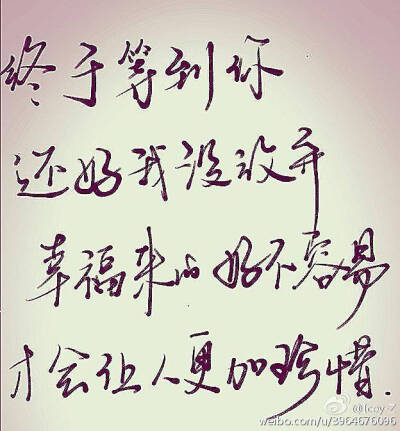 终于等到你
还好我没放弃
幸福来的好不容易
才会让人更加珍惜.
weibo.com/u/3964676096